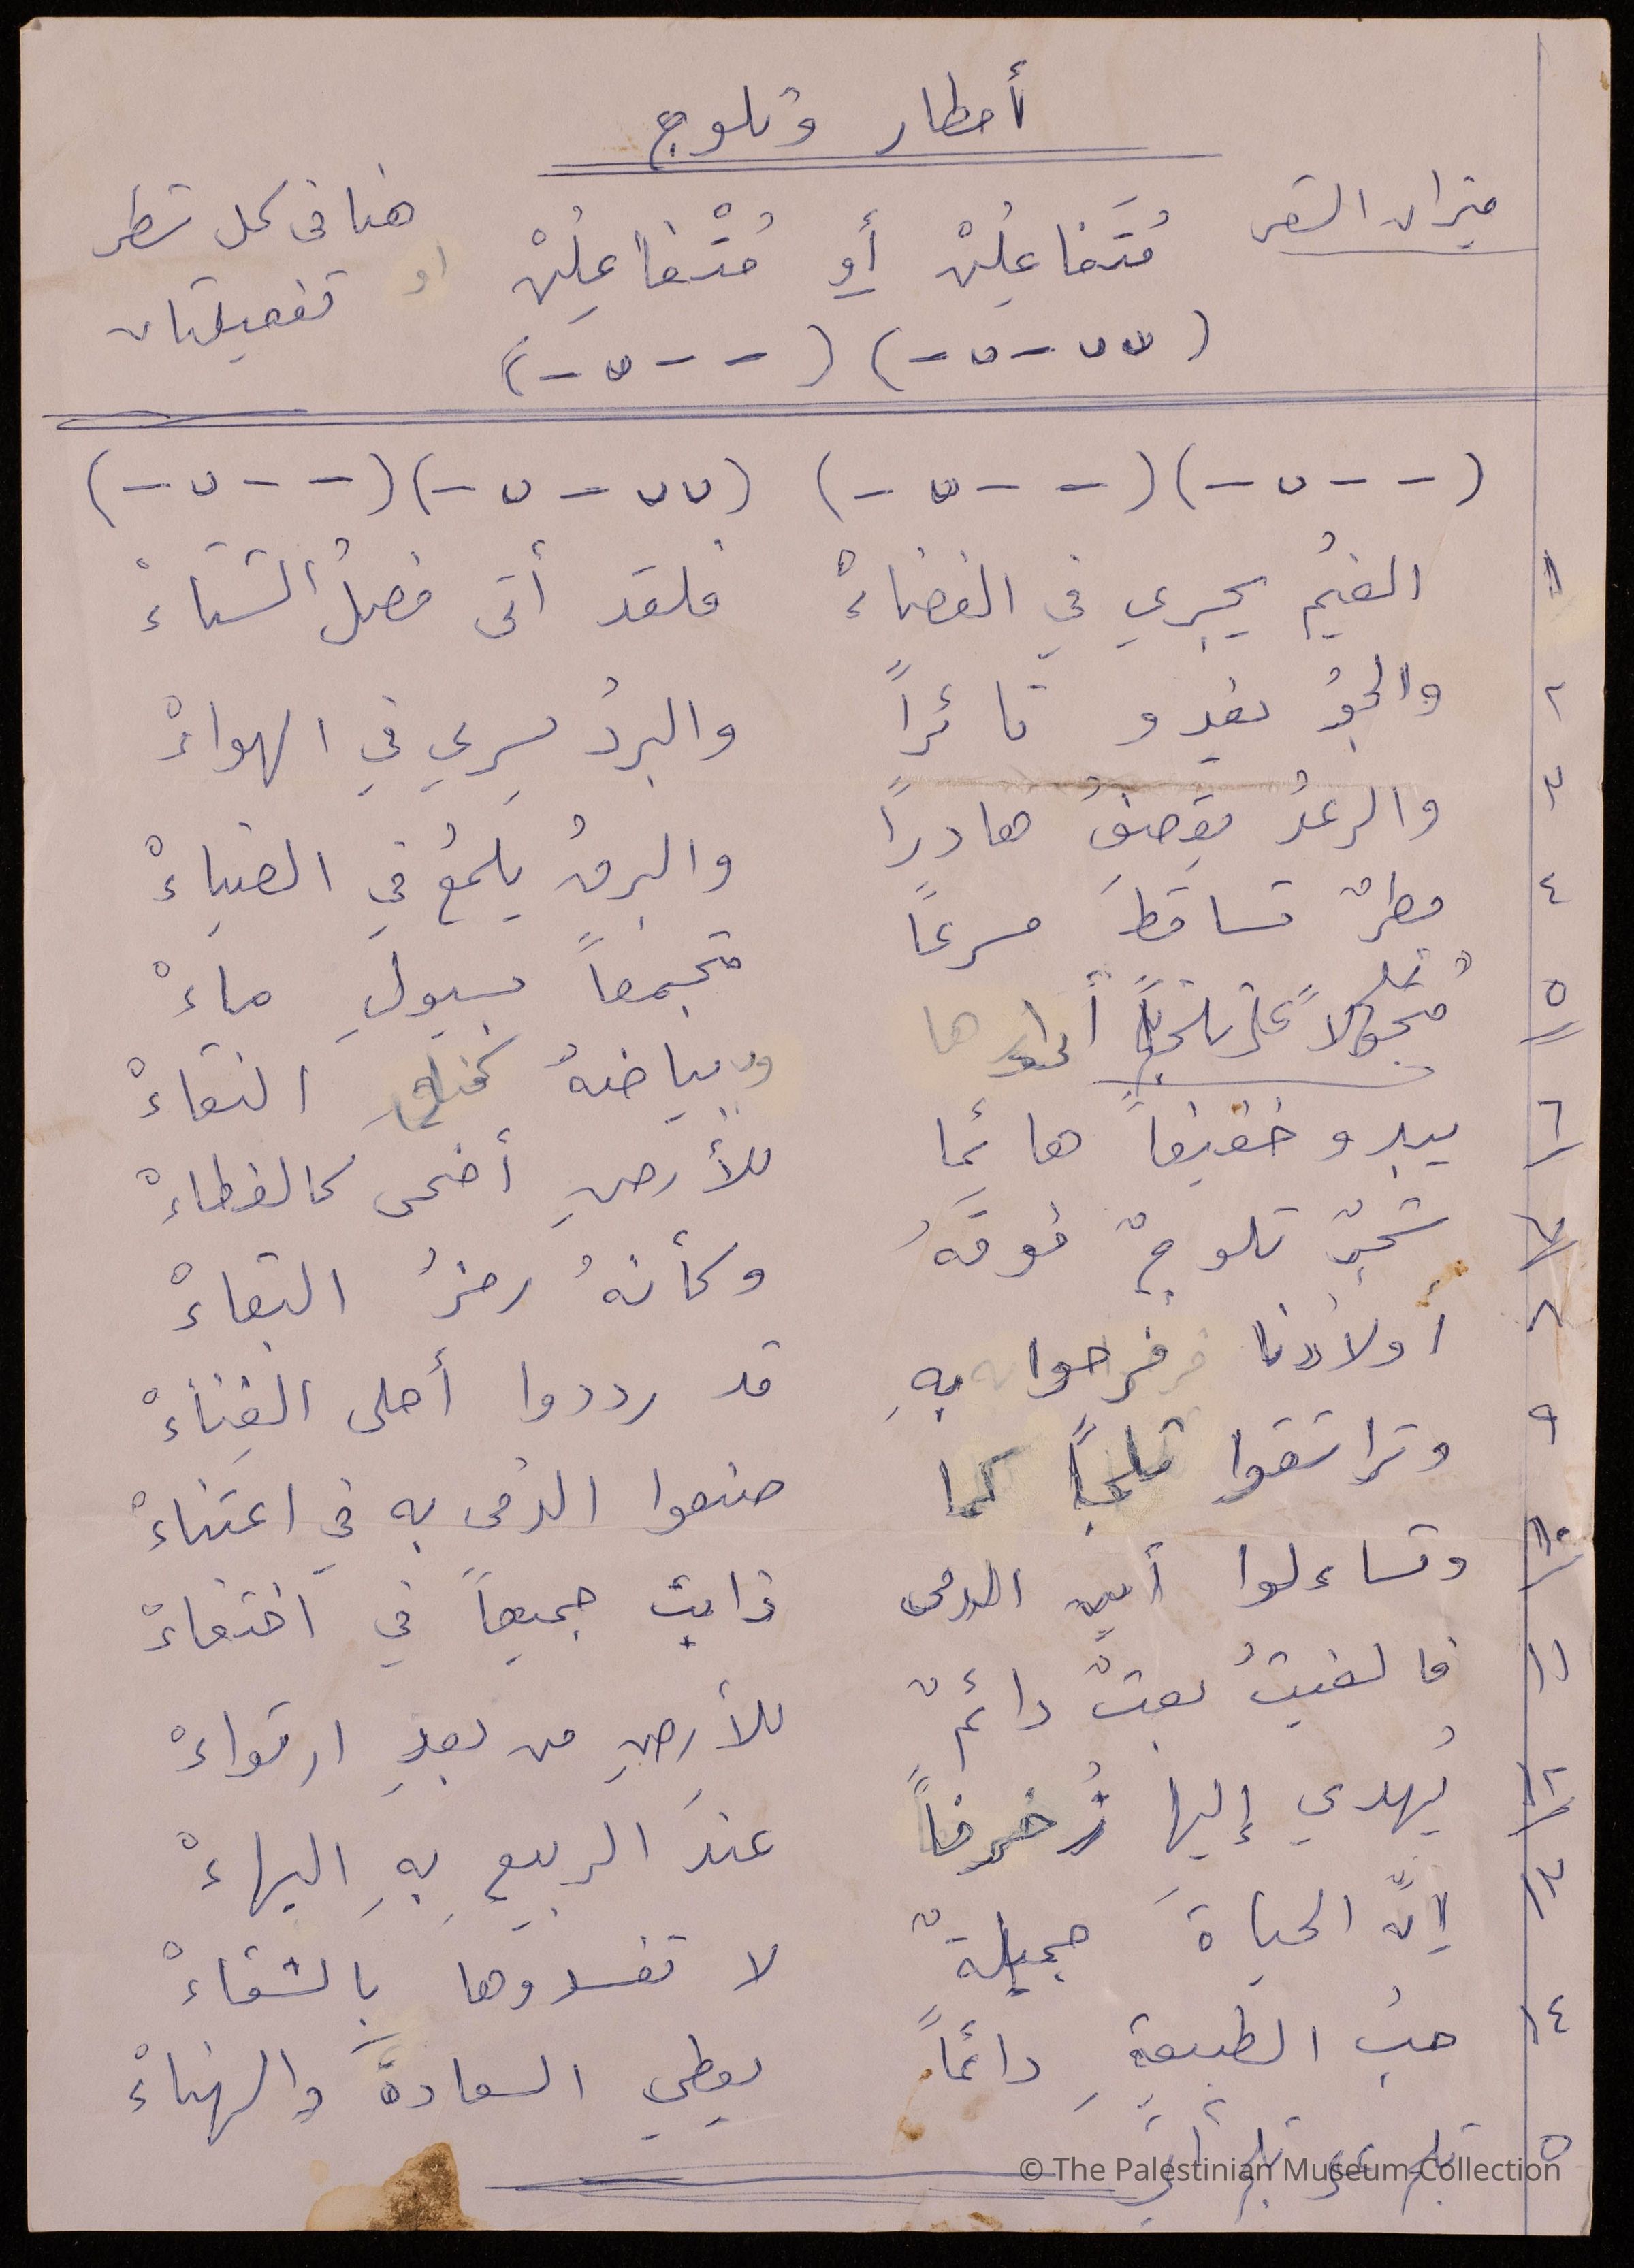 أمطار وثلوج
ميزان الشعر مُتَفاعِلُنْ أو مُتْفاعِلُنْ هنا في كل شطر تفعيلتان
(ں ں – ں –) (– – ں –)
(– – ں –) (– – ں –) (ں ں – ں –) (– – ں –)
١ الغيمُ يجري في الفضاءْ فلقد أتى فصلُ الشتاءْ
٢ والجوُ يغدو ثائراً والبردُ يسري في الهواءْ
٣ والرعدُ يقصفُ هادراً والبرقُ يلمعُ في الضياءْ
٤ مطرٌ تساقطَ مسرعاً متجمعاً بسيولِ ماءْ
٥ وبياضهُ النقاءْ
٦ يبدو خفيفاً هائما للأرضِ أضحى كالغطاءْ
٧ شجرٌ ثلوجٌ فوقَهُ وكأنهُ رمزُ البقاءْ
٨ أولادنا فرحوا بهِ قد رددوا أحلى الغِناءْ
٩ وتراشقوا ثلجاً كما صنعوا الدُمى به في اعتناءْ
١٠ وتساءلوا أين الدمى ذابت جميعاً في اختفاءْ
١١ فالغيثُ بعثٌ دائمٌ للأرضِ من بعدِ ارتواءْ
١٢ يُهدي إليها زُخرفاً عندَ الربيعِ بِهِ البهاءْ
١٣ إنّ الحياةَ جميلةٌ لا تفسدوها بالشقاءْ
١٤ حبُ الطبيعةِ دائماً يعطي السعادةَ والهناءْ
١٥
© The Palestinian Museum-Collection